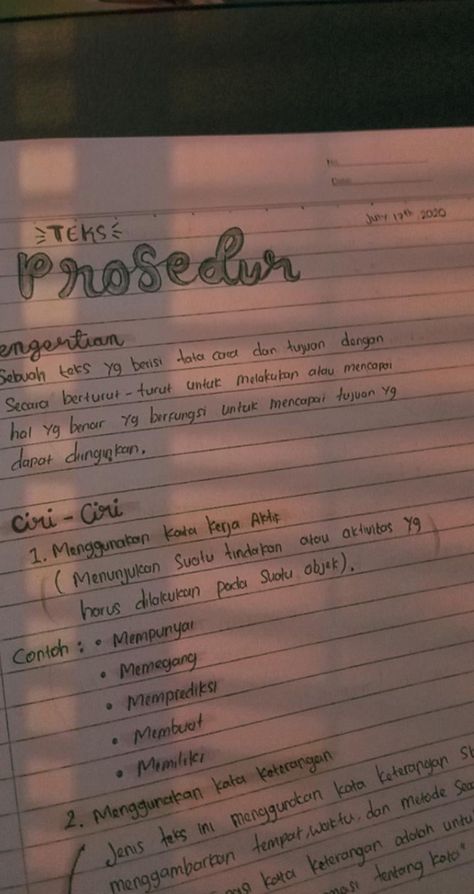 No.
Date
July 17th 2020
TEKS
Prosedur
engertian
Sebuah teks yg berisi tata cara dan tujuan dengan
Secara berturut-turut untuk melakukan atau mencapai
hal yg benar yg berfungsi untuk mencapai tujuan yg
dapat diinginkan.
Ciri - Ciri
1. Menggunakan Kata Kerja Aktif
( Menunjukan Suatu tindakan atau aktivitas yg
harus dilakukan pada Suatu objek).
Contoh : • Mempunyai
• Memegang
• Memprediksi
• Membuat
• Memiliki
2. Menggunakan kata Keterangan
Jenis teks ini menggunakan kata keterangan
menggambarkan tempat, waktu, dan metode
kata keterangan adalah
tentang kata"